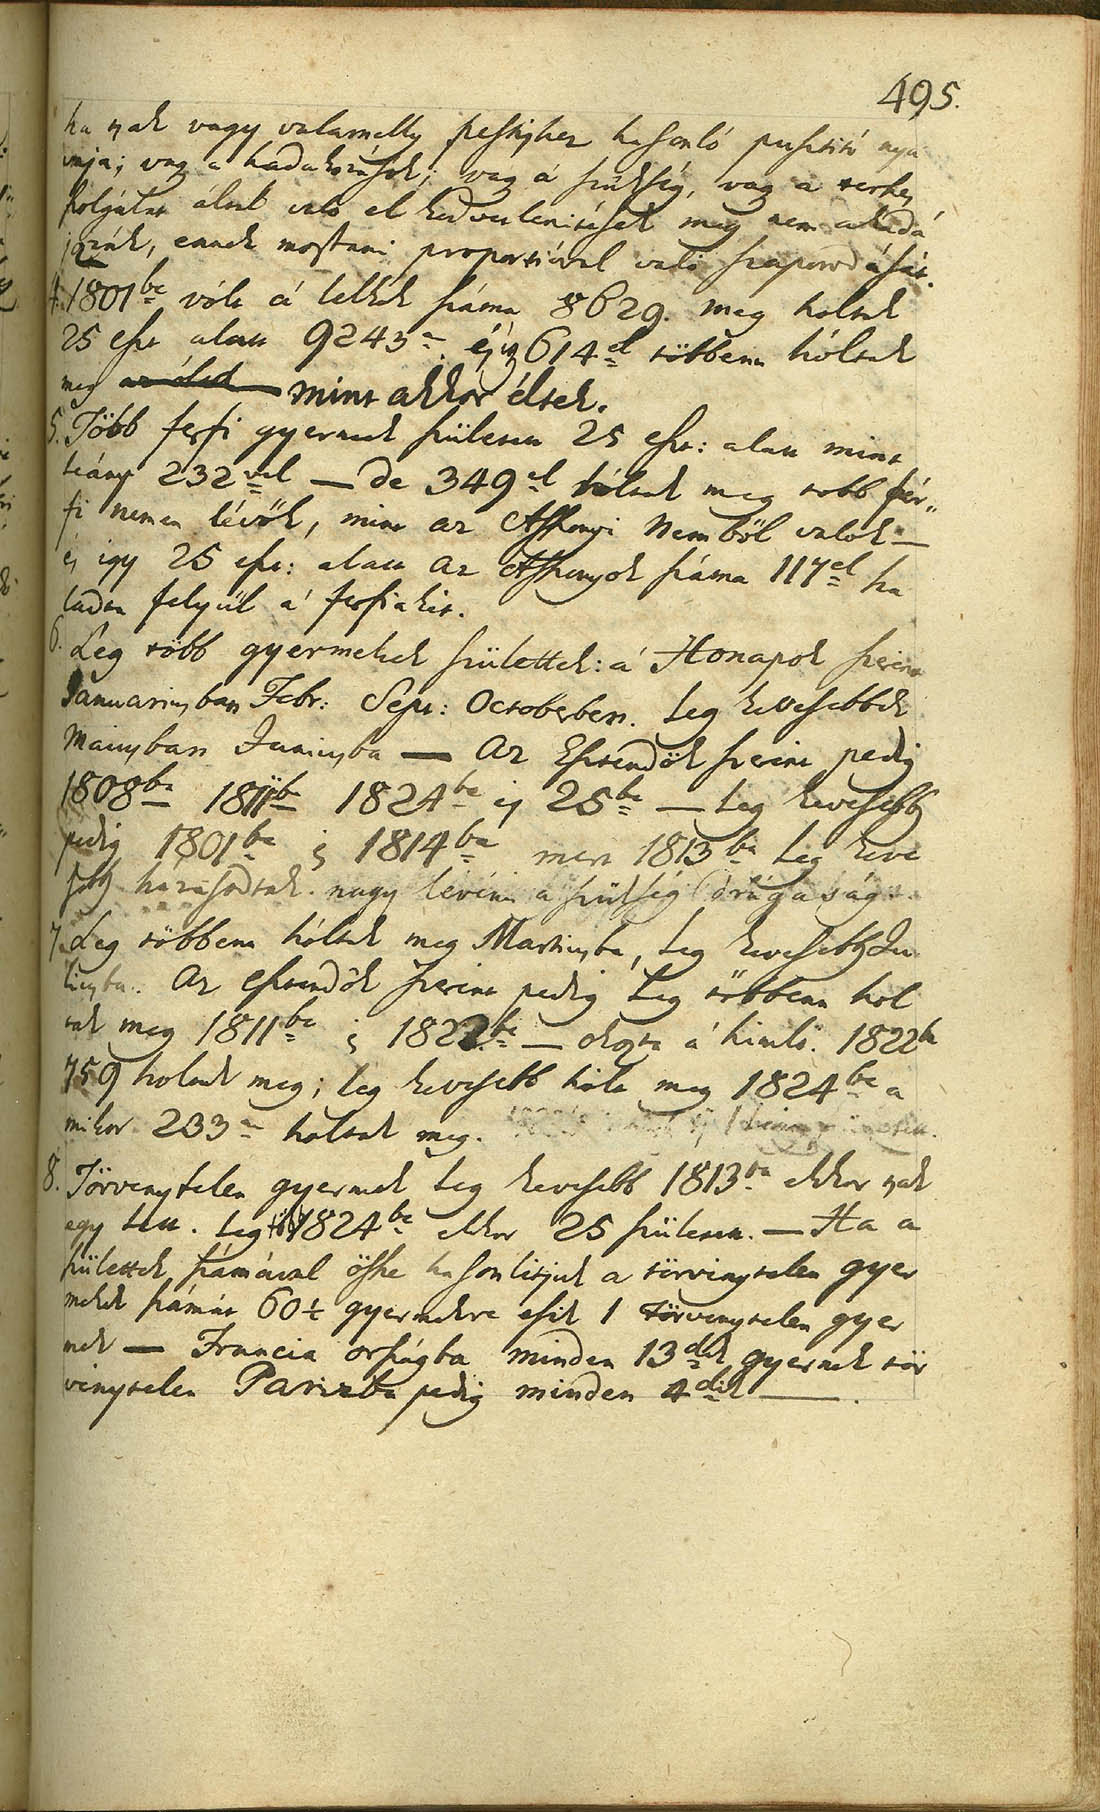 495.
ha tsak vagy valamelly pestishez hasonló pusztitó nya
valyája; vagy a hadakozások; vagy á szükség, vagy a terhes
szolgálat által való el kedvetlenitések meg nem akadá
jozzák, ennek mostani proportióval való szaporodását.
4. 1801be vólt á lelkek száma 8629. meg holtak
25 eszt alatt 9243n és igy 614el többenn hóltak
meg mint akkor éltek.
5. Több ferfi gyermek születtek 25 eszt: alatt mint
leány 232vel — de 349el hóltak meg több fér„
fi nemen lévők, mint az Asszonyi Nemből valók —
és igy 25 eszt: alatt az Asszonyok száma 117el ha
ladta felyül á ferfiakét.
6. Leg több gyermekek születtek: á Honapok szerint
Januariusban Febr: Sept: Octoberben. Leg kevesebbek
Maiusban Juniusba — Az Esztendők szerint pedig
1808ba 1811be 1824be és 25be — Leg kevesebb
pedig 1801be és 1814be mert 1813ba Leg keve
sebb házasodtak. nagy lévén a szükség drágaság.
7. Leg többenn hóltak meg Martiusba, Leg kevesebb Ju
liusba. Az esztendők szerint pedig Leg többenn hol
tak meg 1811be és 1822be — okozta á himlő. 1822be
759 holtak meg; leg kevesebb hólt meg 1824be a
mikor 233n holtak meg.
8. Törvenytelen gyermek Leg kevesebb 1813ba ekkor tsak
egy lett. Leg több 1824be ekkor 25 születtek. — Ha a
születtek számával öszve hasonlitjuk a törvénytelen gyer
mekek számát 60½ gyermekre esik 1 törvenytelen gyer
mek — Francia országba minden 13dik gyermek tör
vénytelen Parizba pedig minden 4dik —.